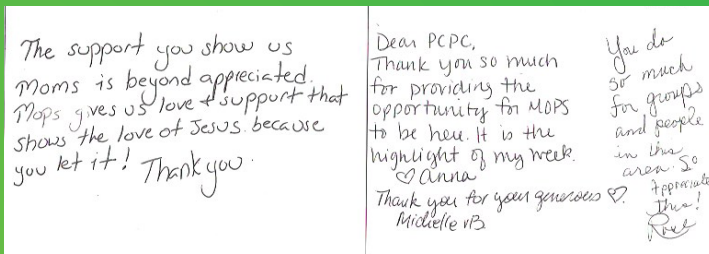 The support you show us
Moms is beyond appreciated.
Mops gives us love + support that
shows the love of Jesus. because
you let it! Thank you.
Dear PCPC,
Thank you so much
for providing the
opportunity for MOPS
to be here. It is the
highlight of my week.
♡ Anna
Thank you for your generous ♡.
Michelle vB
You do
so much
for groups
and people
in this
area. So
Appreciate
This!